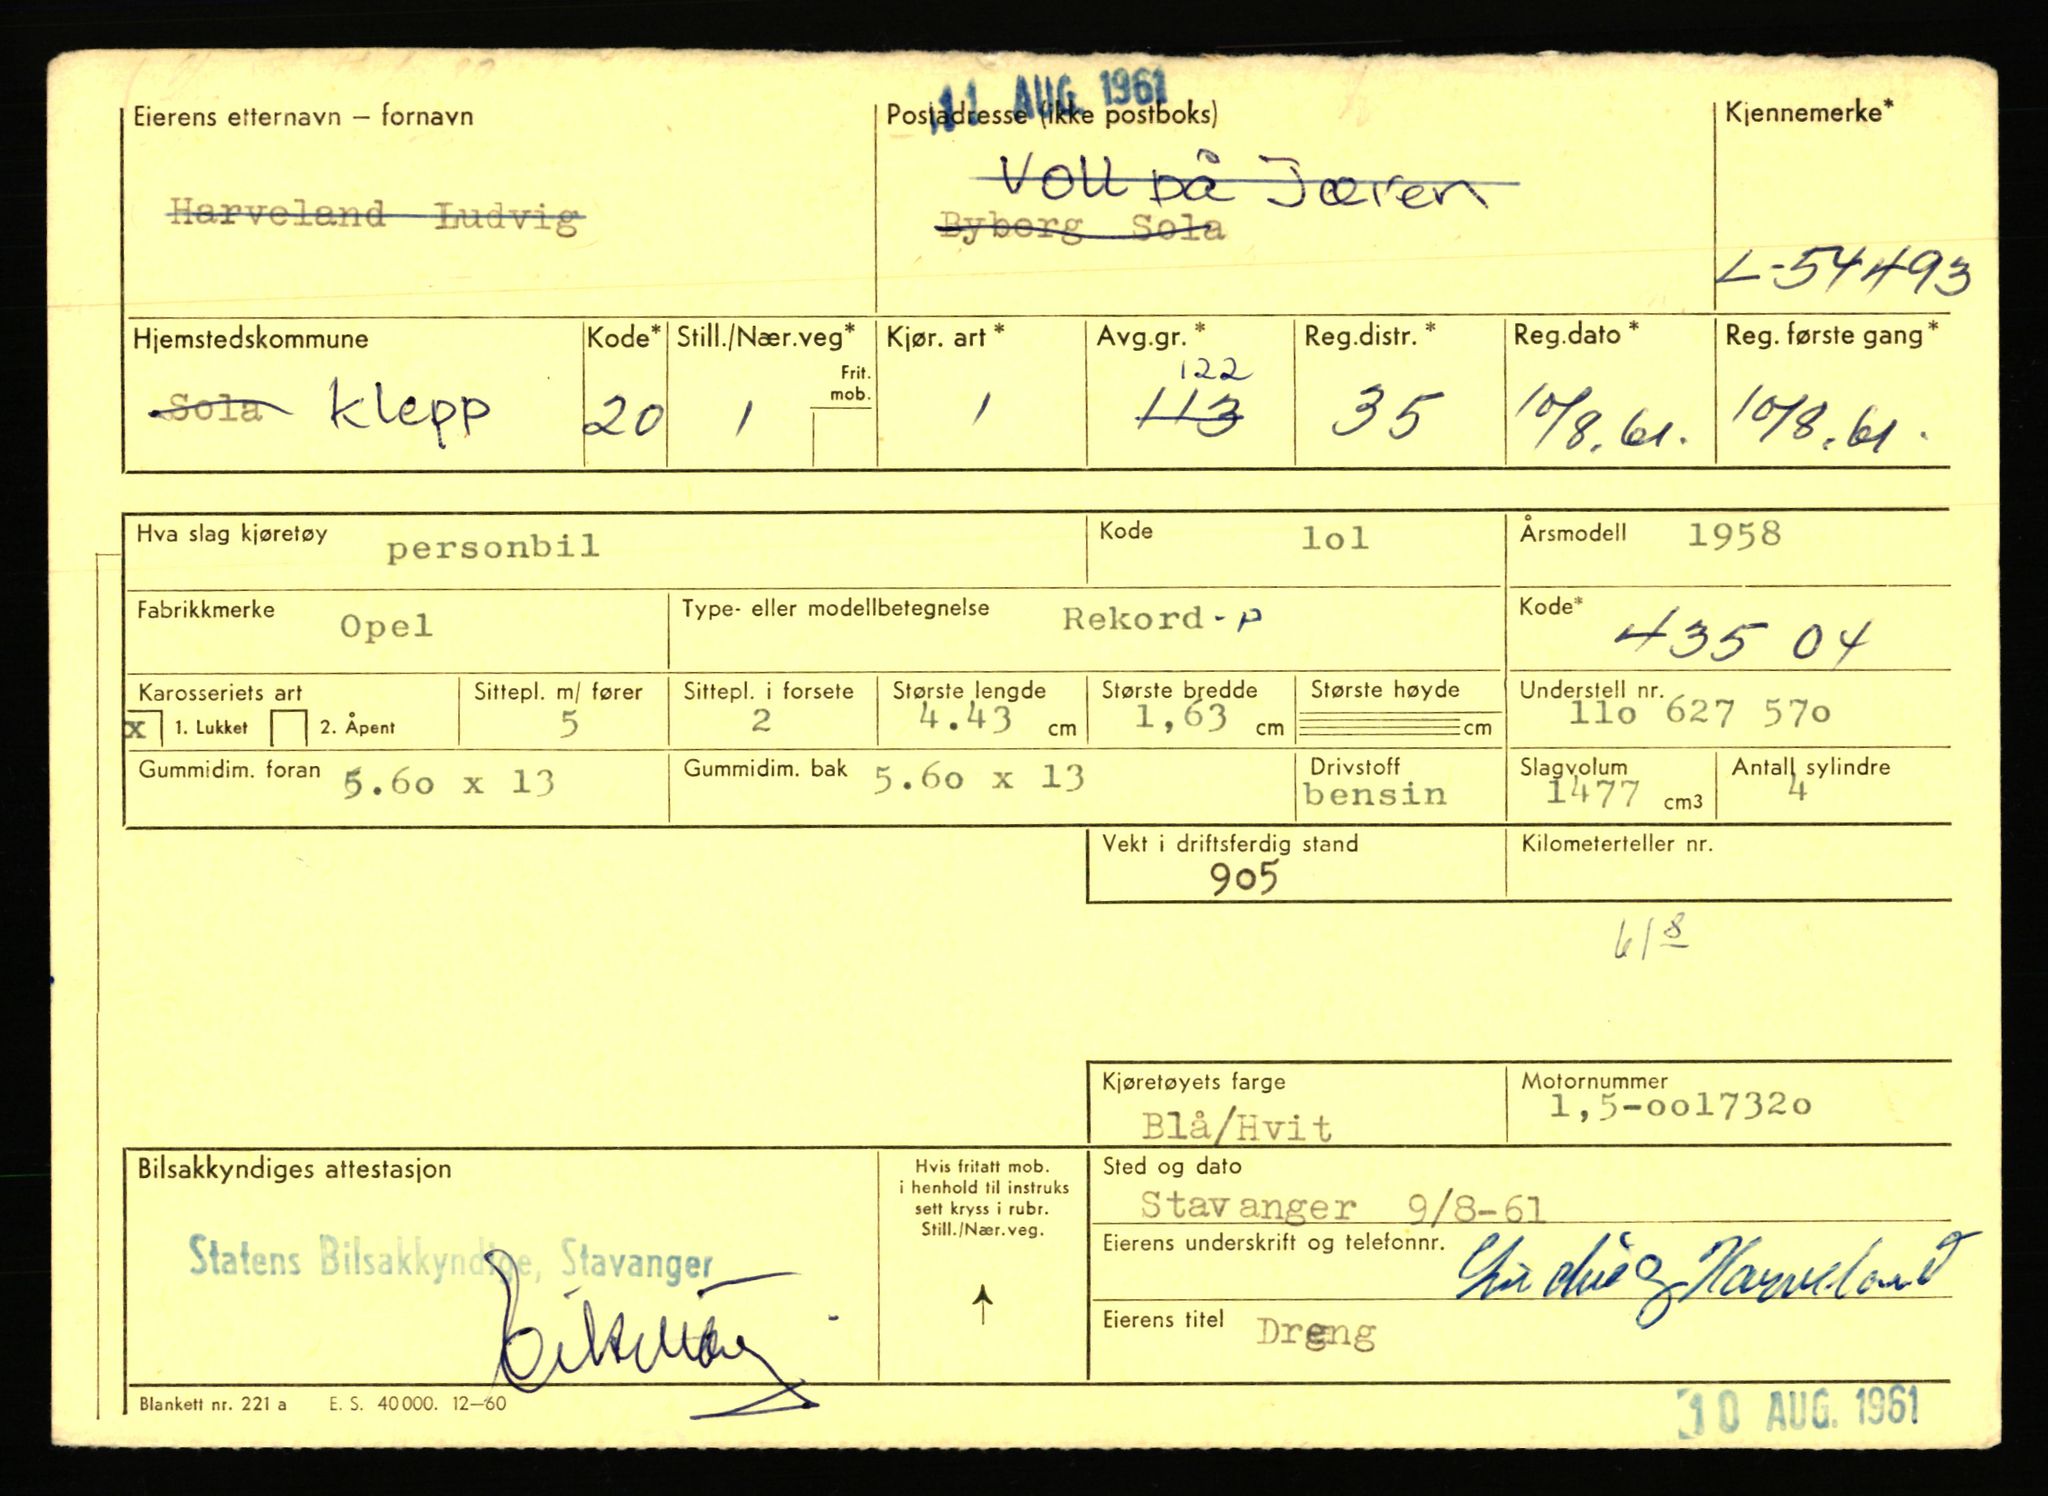 11 AUG. 1961
Eierens etternavn – fornavn
Postadresse (ikke postboks)
Kjennemerke*
Voll på Jæren
Harveland Ludvig
Byberg Sola
L-54493
Hjemstedskommune
Kode*
Still./Nær.veg*
Kjør. art *
Avg.gr. *
Reg.distr. *
Reg.dato *
Reg. første gang *
Frit. mob.
122
Sola Klepp
20
1
1
113
35
10/8. 61.
10/8. 61.
Hva slag kjøretøy
personbil
Kode
lol
Årsmodell
1958
Fabrikkmerke
Opel
Type- eller modellbetegnelse
Rekord-P
Kode*
435 04
Karosseriets art
Sittepl. m/ fører
Sittepl. i forsete
Største lengde
Største bredde
Største høyde
Understell nr.
x 1. Lukket 2. Åpent
5
2
4.43 cm
1,63 cm
cm
llo 627 57o
Gummidim. foran
5.6o x 13
Gummidim. bak
5.6o x 13
Drivstoff
bensin
Slagvolum
1477 cm3
Antall sylindre
4
Vekt i driftsferdig stand
905
Kilometerteller nr.
61 8
Kjøretøyets farge
Blå/Hvit
Motornummer
1,5-ool732o
Bilsakkyndiges attestasjon
Statens Bilsakkyndige, Stavanger
Hvis fritatt mob.
i henhold til instruks
sett kryss i rubr.
Still./Nær.veg.
Sted og dato
Stavanger 9/8-61
Eierens underskrift og telefonnr.
Ludvig Harveland
Eierens titel
Dreng
Blankett nr. 221 a E. S. 40 000. 12–60
10 AUG. 1961